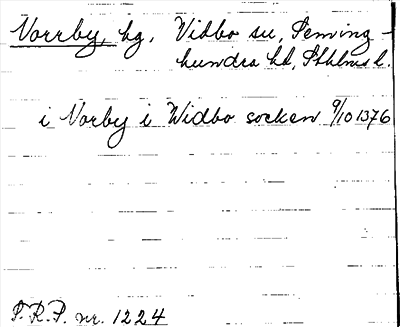 Norrby, hg, Vidbo sn, Seming-
hundra hd, Sthlms l.
i Norby i Widbo socken 9/10 1376
S.R.P. nr. 1224